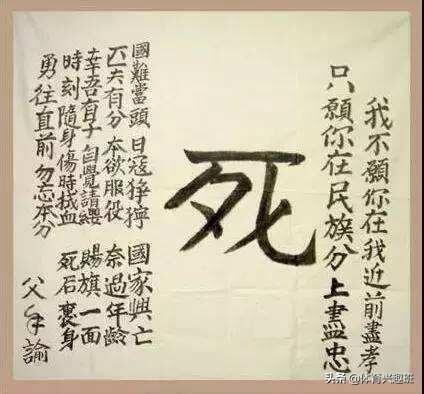 我不願你在我近前盡孝
只願你在民族分上盡忠
死
國難當頭 日寇猙獰 國家興亡
匹夫有分 本欲服役 奈過年齡
幸吾有子 自覺請纓 賜旗一面
時刻隨身 傷時拭血 死后裹身
勇往直前 勿忘本分
父手諭
头条 @体育兴趣班